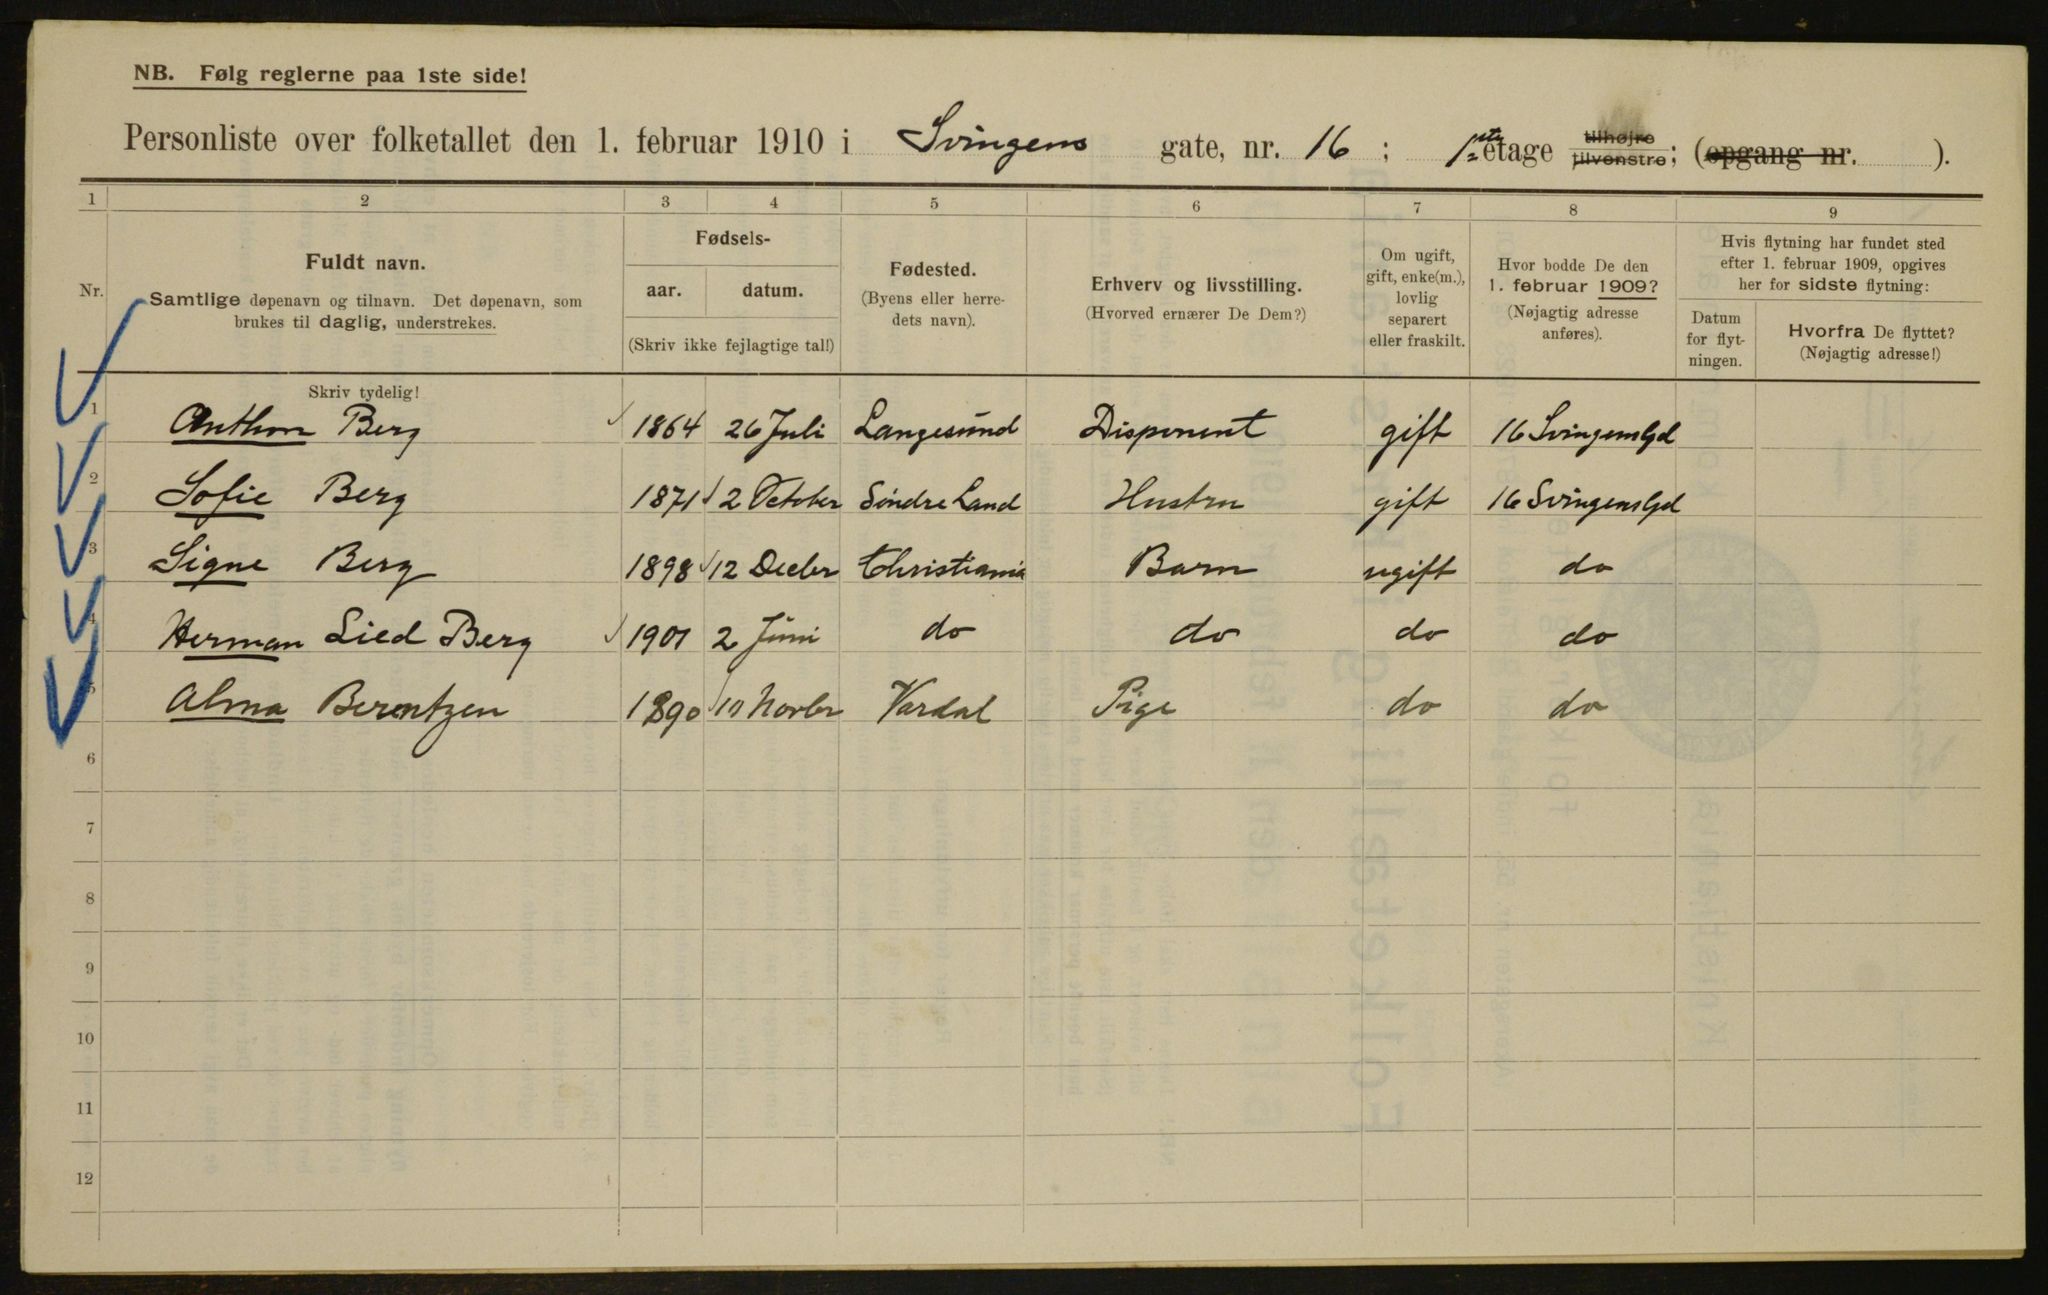 NB. Følg reglerne paa 1ste side!
Personliste over folketallet den 1. februar 1910 i Svingens gate, nr. 16 ; 1ste etage tilhøjre tilvenstre; (opgang nr. ).
1 2 3 4 5 6 7 8 9
Nr.
Fuldt navn.
Samtlige døpenavn og tilnavn. Det døpenavn, som
brukes til daglig, understrekes.
Fødsels-
aar. datum.
(Skriv ikke fejlagtige tal!)
Fødested.
(Byens eller herre-
dets navn).
Erhverv og livsstilling.
(Hvorved ernærer De Dem?)
Om ugift,
gift, enke(m.),
lovlig
separert
eller fraskilt.
Hvor bodde De den
1. februar 1909?
(Nøjagtig adresse
anføres).
Hvis flytning har fundet sted
efter 1. februar 1909, opgives
her for sidste flytning:
Datum
for flyt-
ningen.
Hvorfra De flyttet?
(Nøjagtig adresse!)
Skriv tydelig!
1 Anthon Berg 1864 26 Juli Langesund Disponent gift 16 Svingensgd
2 Sofie Berg 1871 2 October Søndre Land Hustru gift 16 Svingensgd
3 Signe Berg 1898 12 Decbr Christiania Barn ugift do
4 Herman Lied Berg 1901 2 Juni do do do do
5 Alma Berentzen 1890 10 Novbr Vardal Pige do do
6
7
8
9
10
11
12